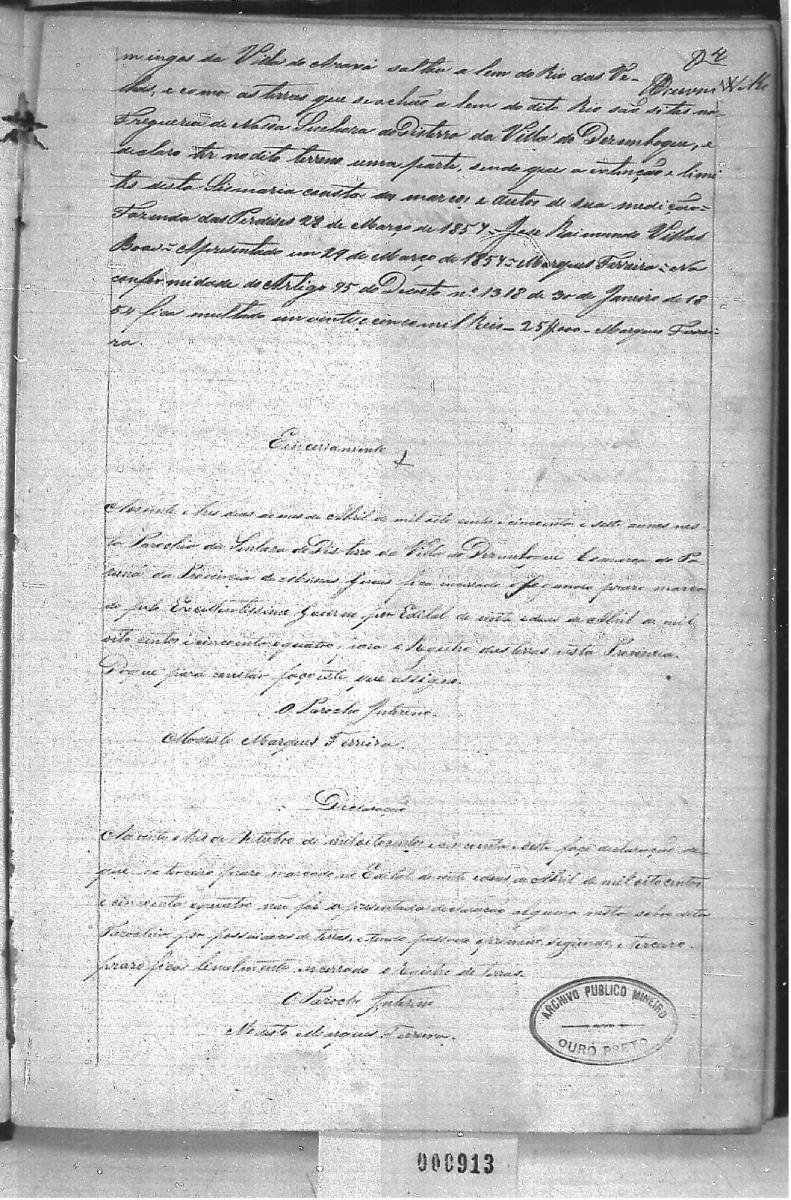 mingos da Villa do Araxá saltão a lem do Rio das Ve-
lhas, e como as terras que se achão a lem do dito Rio são sitas na
Freguezia de Nossa Senhora do Disterro da Villa do Dezemboque, e
declaro ter no dito terreno uma parte, sendo que a extinção e limi-
tes desta Sismaria consta dos marcos e autos de sua medição=
Fazenda das Perdises 28 de Março de 1857= Jose Raimundo Villas
Boas= Apresentado em 29 de Março de 1857= Marques Ferreira= Na
conformidade do Artigo 95 do Decreto nº 1318 de 30 de Janeiro de 18
54 fica multado em vinte e cinco mil Reis_ 25$000_ Marques Ferrei-
ra.
Encerramento
Aos vinte e tres dias do mes de Abril de mil oito centos e cincoenta e sete annos nes
ta Parochia da Senhora do Disterro da Villa do Dezemboque Comarca do Pa-
raná da Provincia de Minas Geraes fica incerrado o segundo prazo marca
do pelo Excellentissimo Governo por Edital de vinte e dous de Abril de mil
oito centos e cincoenta e quatro, para o Registro das terras nesta Provincia.
Do que para constar faço este, que assigno.
O Parocho Interino.
Modesto Marques Ferreira.
Declaração
Aos vinte e tres de Outubro de mil oito centos e cincoenta e sete faço declaração de
que no terceiro prazo marcado no Edital de vinte e dous de Abril de mil oito centos
e cincoenta e quatro não foi apresentada declaração alguma nesta sobre dita
Parochia por possuidores de terras, e tendo passado o primeiro, segundo, e terceiro
prazo fica finalmente incerrado o Registro de terras.
O Parocho Interino
Modesto Marques Ferreira.
ARCHIVO PUBLICO MINEIRO
OURO PRETO
000913